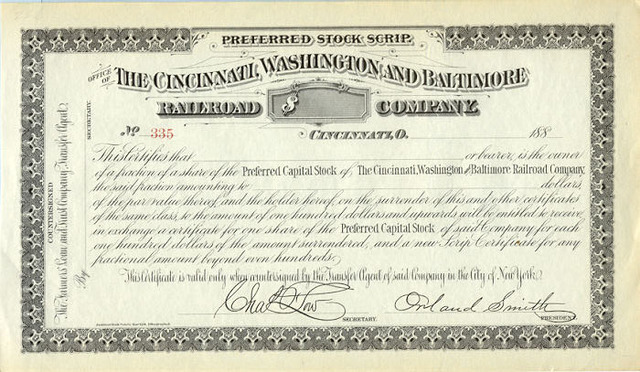 PREFERRED STOCK SCRIP.
OFFICE OF
THE CINCINNATI, WASHINGTON AND BALTIMORE
RAILROAD $ COMPANY.
SECRETARY.
No 335
CINCINNATI, O. 188
This Certifies that or bearer, is the owner
of a fraction of a share of the Preferred Capital Stock of The Cincinnati, Washington and Baltimore Railroad Company,
the said fraction amounting to dollars,
of the par value thereof, and the holder hereof, on the surrender of this and other certificates
of the same class, to the amount of one hundred dollars and upwards will be entitled to receive
in exchange a certificate for one share of the Preferred Capital Stock of said Company for each
one hundred dollars of the amount surrendered, and a new Scrip Certificate for any
fractional amount beyond even hundreds.
This Certificate is valid only when countersigned by the Transfer Agent of said Company in the City of New York.
COUNTERSIGNED
The Farmers' Loan and Trust Company, Transfer Agent.
By
Orland Smith
SECRETARY.
PRESIDENT.